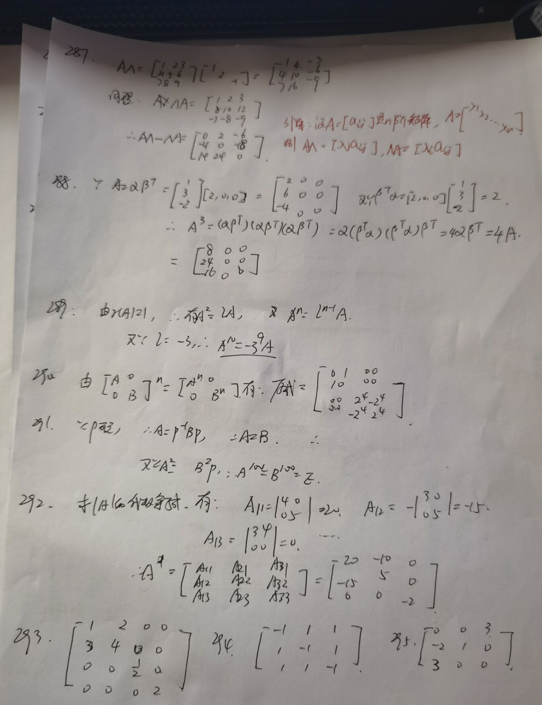 287. AΛ = [1 2 3; 4 5 6; 7 8 9] [1 2 -1] = [-1 4 -3; 4 10 -6; 7 16 -9]
同理: ΛA = [1 2 3; 8 10 12; -7 -8 -9]
∴ AΛ-ΛA = [0 2 -6; -4 0 -18; 14 24 0].
288. ∵ A=αβᵀ = [1; 3; -2] [2,0,0] = [2 0 0; 6 0 0; -4 0 0] 又∵ βᵀα=[2,0,0] [1; 3; -2] = 2.
∴ A³=(αβᵀ)(αβᵀ)(αβᵀ) = α(βᵀα)(βᵀα)βᵀ=4αβᵀ=4A.
= [8 0 0; 24 0 0; -16 0 0]
289. 由r(A)=1, ∴有A²=lA, 又 Aⁿ=lⁿ⁻¹A.
又∵ l=-3, ∴ A¹⁰=-3⁹A
290. 由 [A 0; 0 B]ⁿ = [Aⁿ 0; 0 Bⁿ] 有: 原式 = [0 1 0 0; 1 0 0 0; 0 0 2⁴ -2⁴; 0 0 -2⁴ 2⁴].
291. ∵P可逆, ∴A=P⁻¹BP, ∴A≃B. ∴
又∵A²= B²P, ∴A¹⁰⁰=B¹⁰⁰=E.
292. 求|A|的代数余子式. 有: A₁₁=|4 0; 0 5|=20. A₁₂ = -|3 0; 0 5|=-15.
A₁₃ = |3 4; 0 0|=0. ……
∴A* = [A₁₁ A₂₁ A₃₁; A₁₂ A₂₂ A₃₂; A₁₃ A₂₃ A₃₃] = [20 -10 0; -15 5 0; 0 0 -2]
293. [1 2 0 0; 3 4 0 0; 0 0 1/2 0; 0 0 0 2] 294. [-1 1 1; 1 -1 1; 1 1 -1] 295. [0 0 3; -2 1 0; 3 0 0].